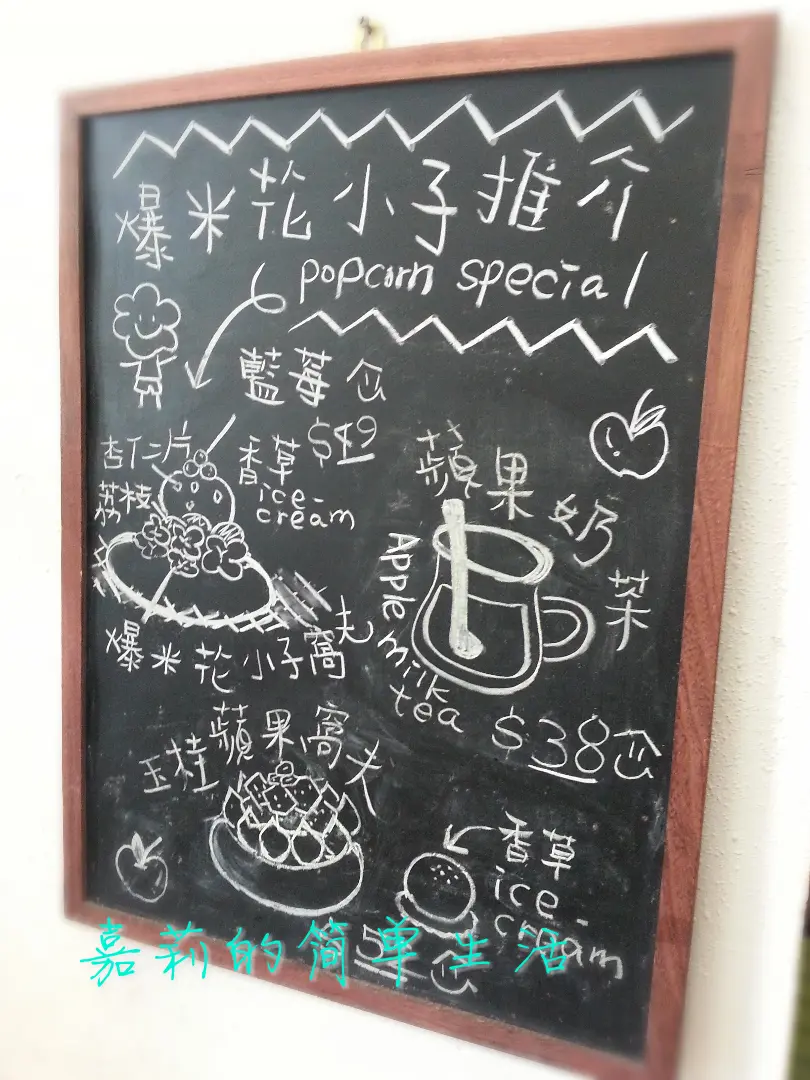 爆米花小子推介
popcorn special
藍莓
$49
杏仁片
荔枝
香草
ice-
cream
爆米花小子窩夫
蘋果奶茶
Apple milk tea
$38
玉桂蘋果窩夫
香草
ice-
cream
嘉莉的简单生活